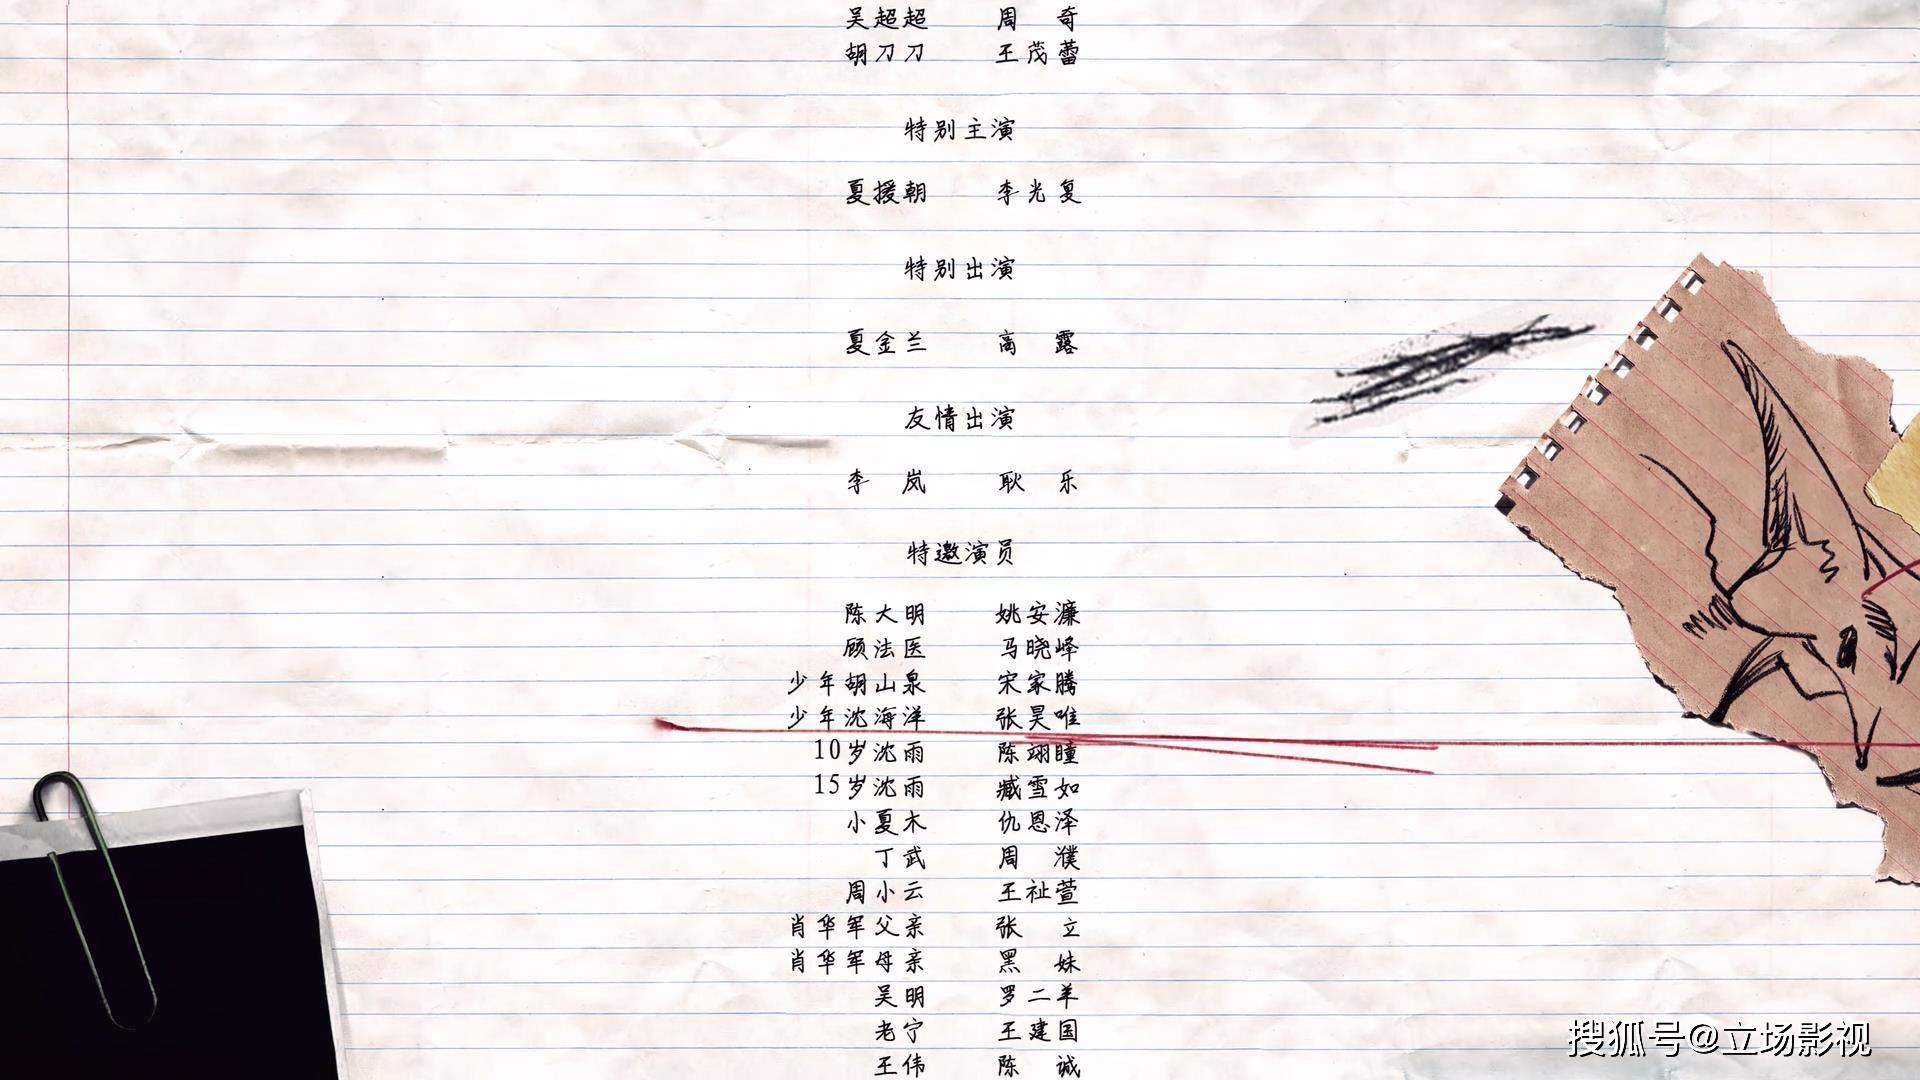 吴超超 周奇
胡刀刀 王茂蕾
特别主演
夏援朝 李光复
特别出演
夏金兰 高露
友情出演
李岚 耿乐
特邀演员
陈大明 姚安濂
顾法医 马晓峰
少年胡山泉 宋家腾
少年沈海洋 张昊唯
10岁沈雨 陈翊曈
15岁沈雨 臧雪如
小夏木 仇恩泽
丁武 周濮
周小云 王祉萱
肖华军父亲 张立
肖华军母亲 黑妹
吴明 罗二羊
老宁 王建国
王伟 陈诚
搜狐号@立场影视